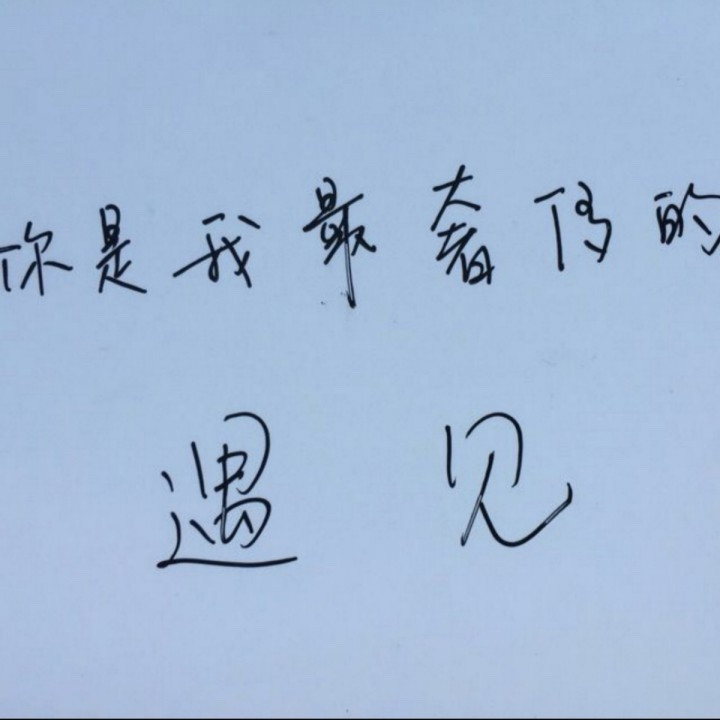 你是我最奢侈的
遇见